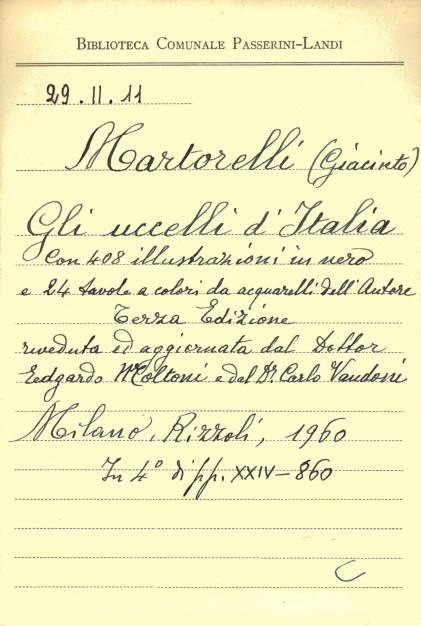 BIBLIOTECA COMUNALE PASSERINI-LANDI
29.II.11
Martorelli (Giacinto)
Gli uccelli d'Italia
Con 408 illustrazioni in nero
e 24 tavole a colori da acquarelli dell'Autore
Terza Edizione
riveduta ed aggiornata dal Dottor
Edgardo Moltoni e dal Dr. Carlo Vandoni
Milano, Rizzoli, 1960
In 4° di pp. XXIV-860